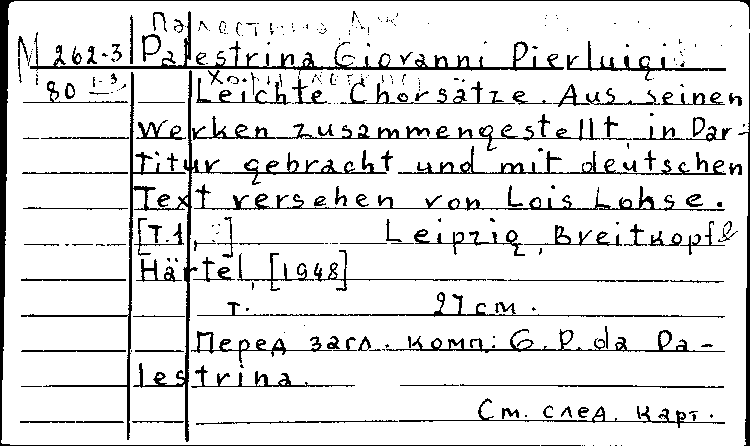 Палестрина Дж
М 262-3 Palestrina Giovanni Pierluigi
80 1-3 Leichte Chorsätze. Aus seinen
Werken zusammengestellt, in Par-
titur gebracht und mit deutschen
Text versehen von Lois Lohse.
[T.1, ] Leipzig, Breitkopf &
Härtel, [1948]
т. 27 см.
Перед загл. комп.: G. P. da Pa-
lestrina.
См. след. карт.